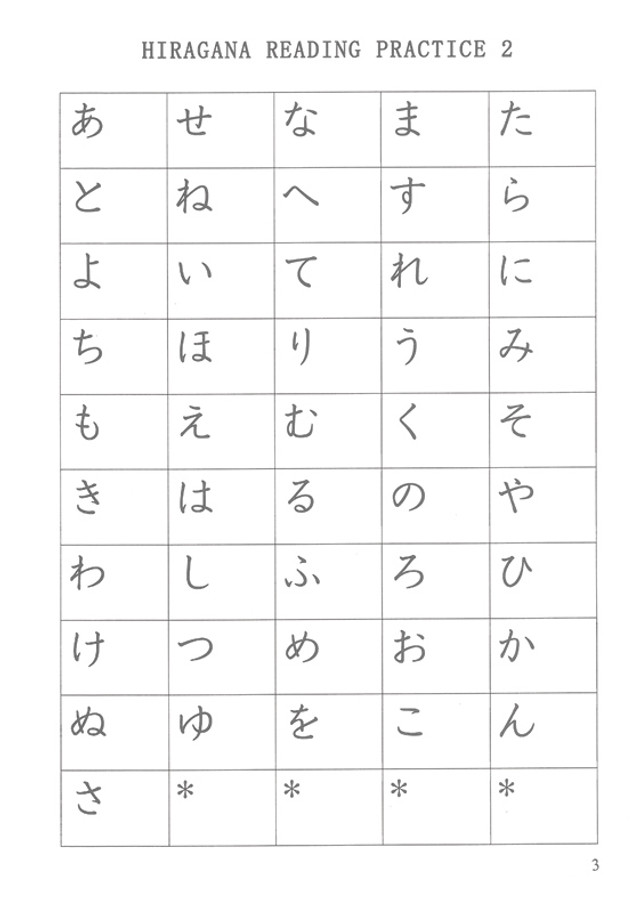 HIRAGANA READING PRACTICE 2
あ せ な ま た
と ね へ す ら
よ い て れ に
ち ほ り う み
も え む く そ
き は る の や
わ し ふ ろ ひ
け つ め お か
ぬ ゆ を こ ん
さ * * * *
3